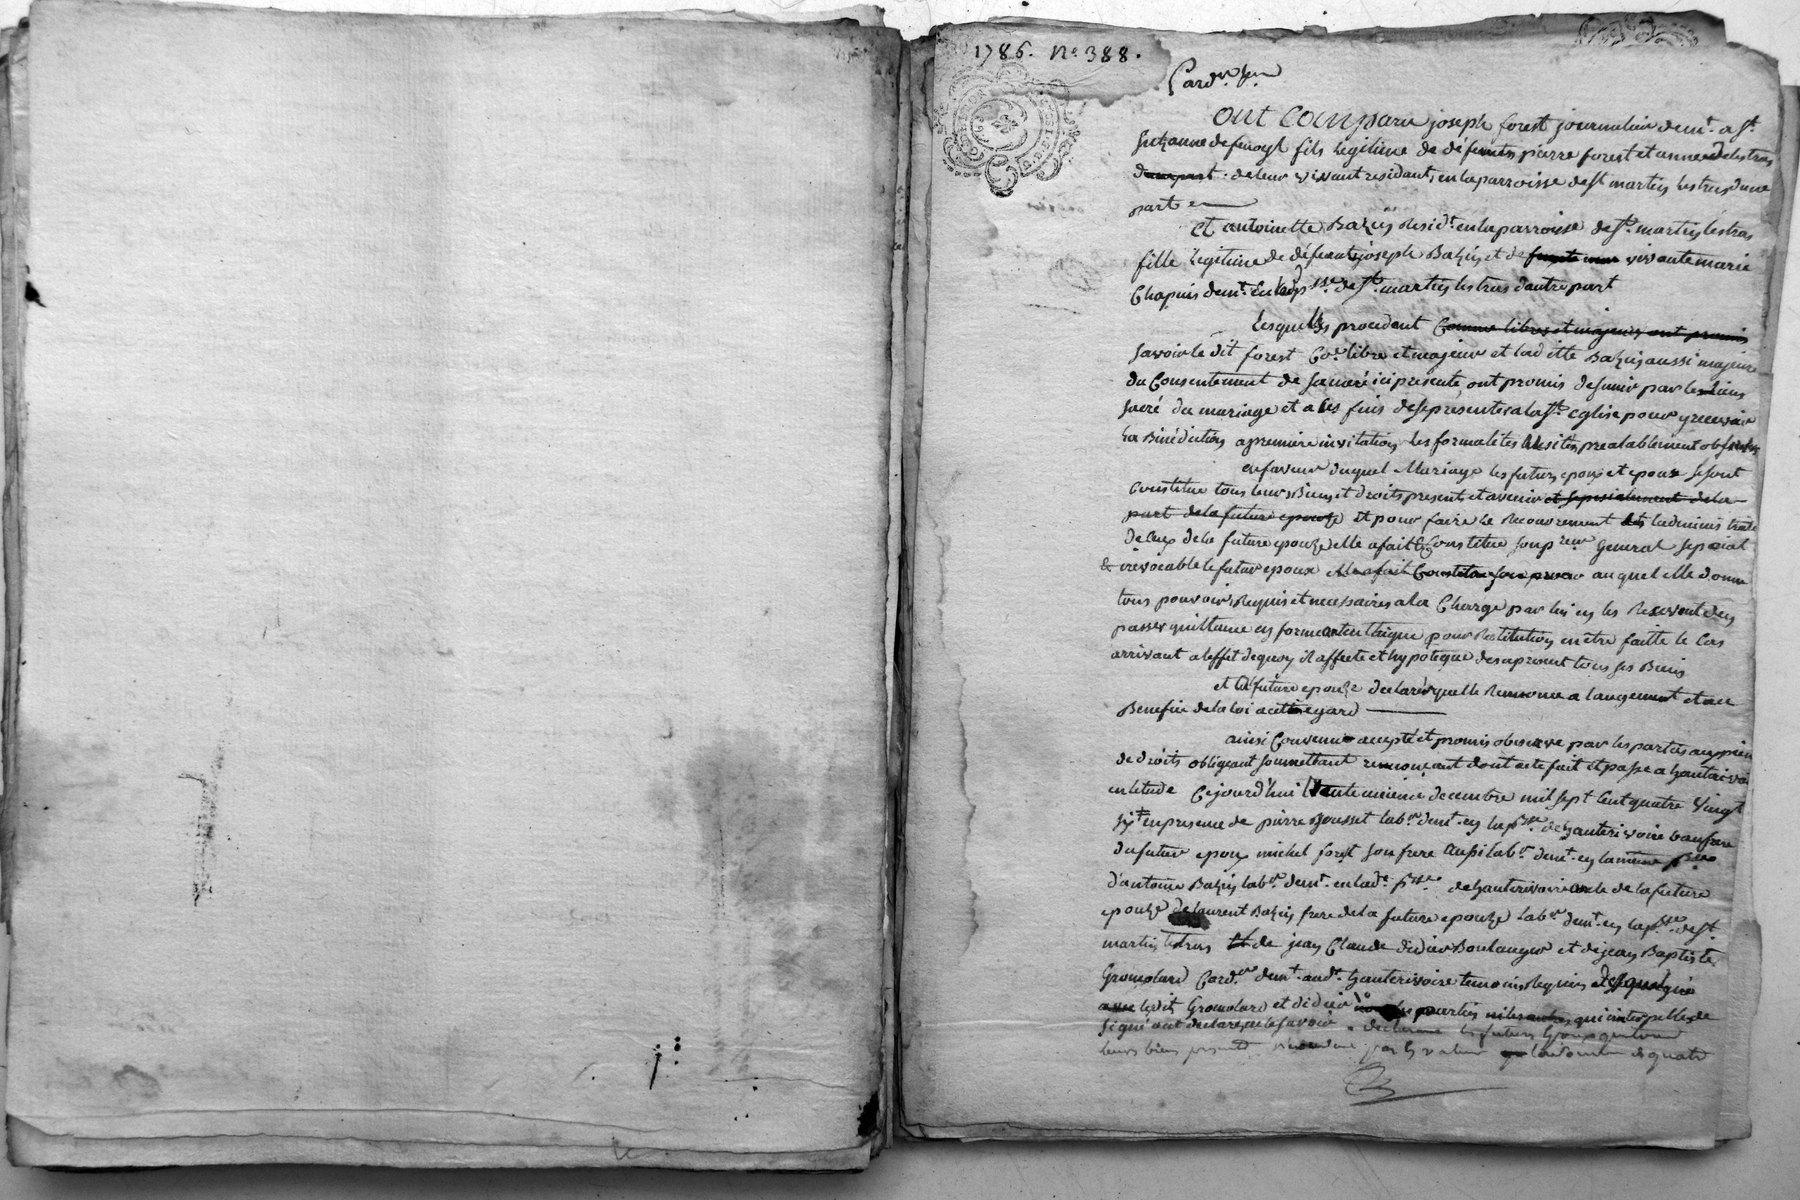 1786. No 388.
ont Comparu joseph forest journalier demt. a St.
Suzanne de fenoyl fils legitime de défunts pierre forest et anne
de leur vivant residants en la parroisse de st martin lestras d'une
part
et antoinette Bazin Residt. en la parroisse de St. martin lestras
fille legitime de défunt joseph Bazin et de vivante marie
Chapuis demt. en lad psse. de St. martin lestras dautre part
lesquelles procedent Comme libres et majeurs ont promis
savoir le dit forest libre et majeur et lad itte Bazin aussi majeure
du Consentement de sa mere ici presente, ont promis de sunir par les liens
sacré du mariage et a ces fins de se présenter a la Ste. eglise pour y recevoir
la Bénédiction a premiere invitation les formalites preablablement
en faveur duquel Mariage les futurs epoux et epouze se sont
Constitue tous leurs Biens et droits presents et avenir et sepecialement de la
part de la future epouze et pour faire le Recouvrement
de ceux de la future epouze elle a fait & Constitue son preur general sepecial
& irrevocable le futur epoux elle a fait Constitue son auquel elle donne
tous pouvoirs Requis et necessaires a la Charge par lui en les Recevant den
passer quittance en forme autenthique pour Restitution en etre faitte le Cas
arrivant a leffet de quoy il affecte et hypoteque des apresent tous ses Biens
et la future epouze declaré quelle Renonce a laugement et au
Benefice de la loi a cette egard
ainsi Convenu accepté et promis observe par les parties
de droits obligeant soumettant renonceant dont acte fait et passe a hauterivoire
en letude Cejourd'hui trente decembre mil sept Cent quatre vingt
six en presence de pierre Jousset labr. demt. en la psse. de hauterivoire beaufrere
du futur epoux michel forest son frere aussi labr. demt. en la meme psse
d'antoine Bazin labr. demt. en lade. psse. de hauterivoire oncle de la future
epouze de laurent Bazin frere de la future epouze labr. demt. en la psse. de St.
martin lestras et de jean Claude didier Boulanger et de jean Baptiste
Gromolard Cardr. demt. aud. hauterivoire temoins Requis
ledit Gromolard et didier parties qui interpellés de
signé ont declaré ne le savoir declarant les futurs
leurs biens presents